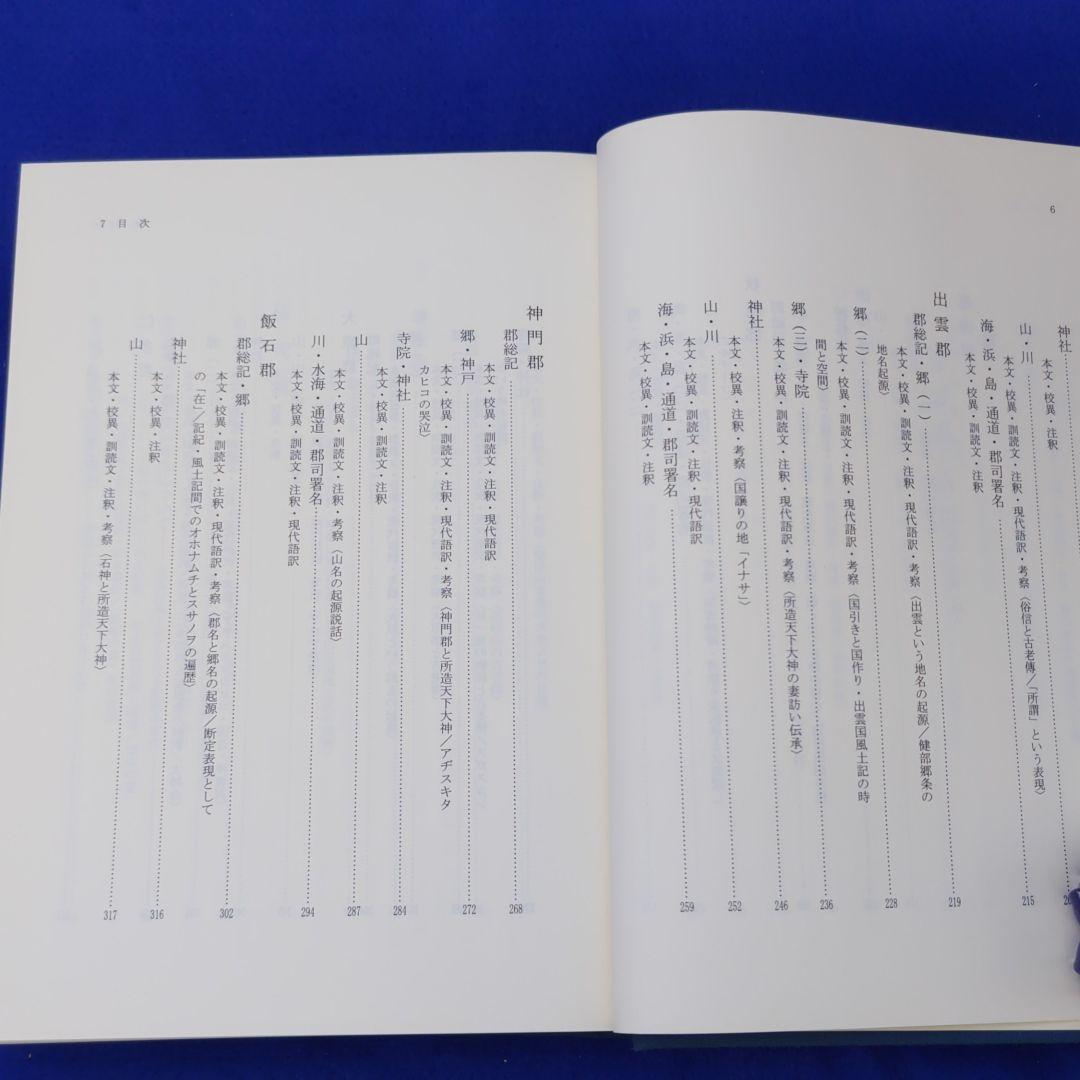 6
神社
本文・校異・注釈
山・川
本文・校異・訓読文・注釈・現代語訳・考察〈俗信と古老傳/「所謂」という表現〉
海・浜・島・通道・郡司署名 215
本文・校異・訓読文・注釈
出雲郡
郡総記・郷(一) 219
本文・校異・訓読文・注釈・現代語訳・考察〈出雲という地名の起源/健部郷条の
地名起源〉
郷(二) 228
本文・校異・訓読文・注釈・現代語訳・考察〈国引きと国作り・出雲国風土記の時
間と空間〉
郷(三)・寺院 236
本文・校異・訓読文・注釈・現代語訳・考察〈所造天下大神の妻訪い伝承〉
神社 246
本文・校異・注釈・考察〈国譲りの地「イナサ」〉
山・川 252
本文・校異・訓読文・注釈・現代語訳
海・浜・島・通道・郡司署名 259
本文・校異・訓読文・注釈
7 目次
神門郡
郡総記 268
本文・校異・訓読文・注釈・現代語訳
郷・神戸 272
本文・校異・訓読文・注釈・現代語訳・考察〈神門郡と所造天下大神/アヂスキタ
カヒコの哭泣〉
寺院・神社 284
本文・校異・訓読文・注釈
山 287
本文・校異・訓読文・注釈・考察〈山名の起源説話〉
川・水海・通道・郡司署名 294
本文・校異・訓読文・注釈・現代語訳
飯石郡
郡総記・郷 302
本文・校異・訓読文・注釈・現代語訳・考察〈郡名と郷名の起源/断定表現として
の「在」/記紀・風土記間でのオホナムチとスサノヲの遍歴〉
神社 316
本文・校異・注釈
山 317
本文・校異・訓読文・注釈・考察〈石神と所造天下大神〉